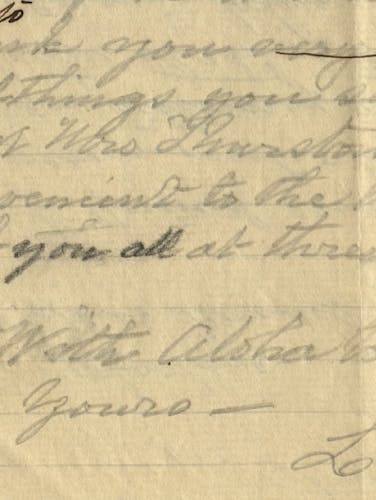 to
you very
things you
Mrs Thurston
to the
you all at three
With Aloha to
Yours —
L